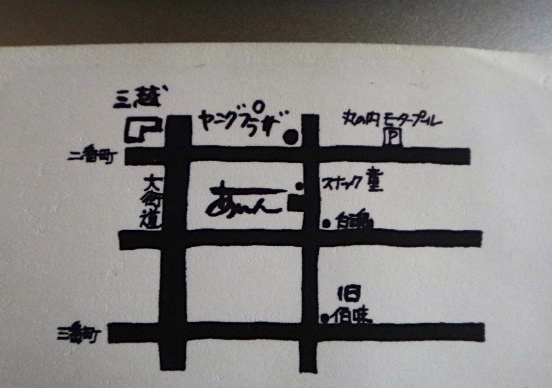 三越
ヤングプラザ
丸の内モータープール
P
二番町
大街道
スナック童
旧
伯味
三番町